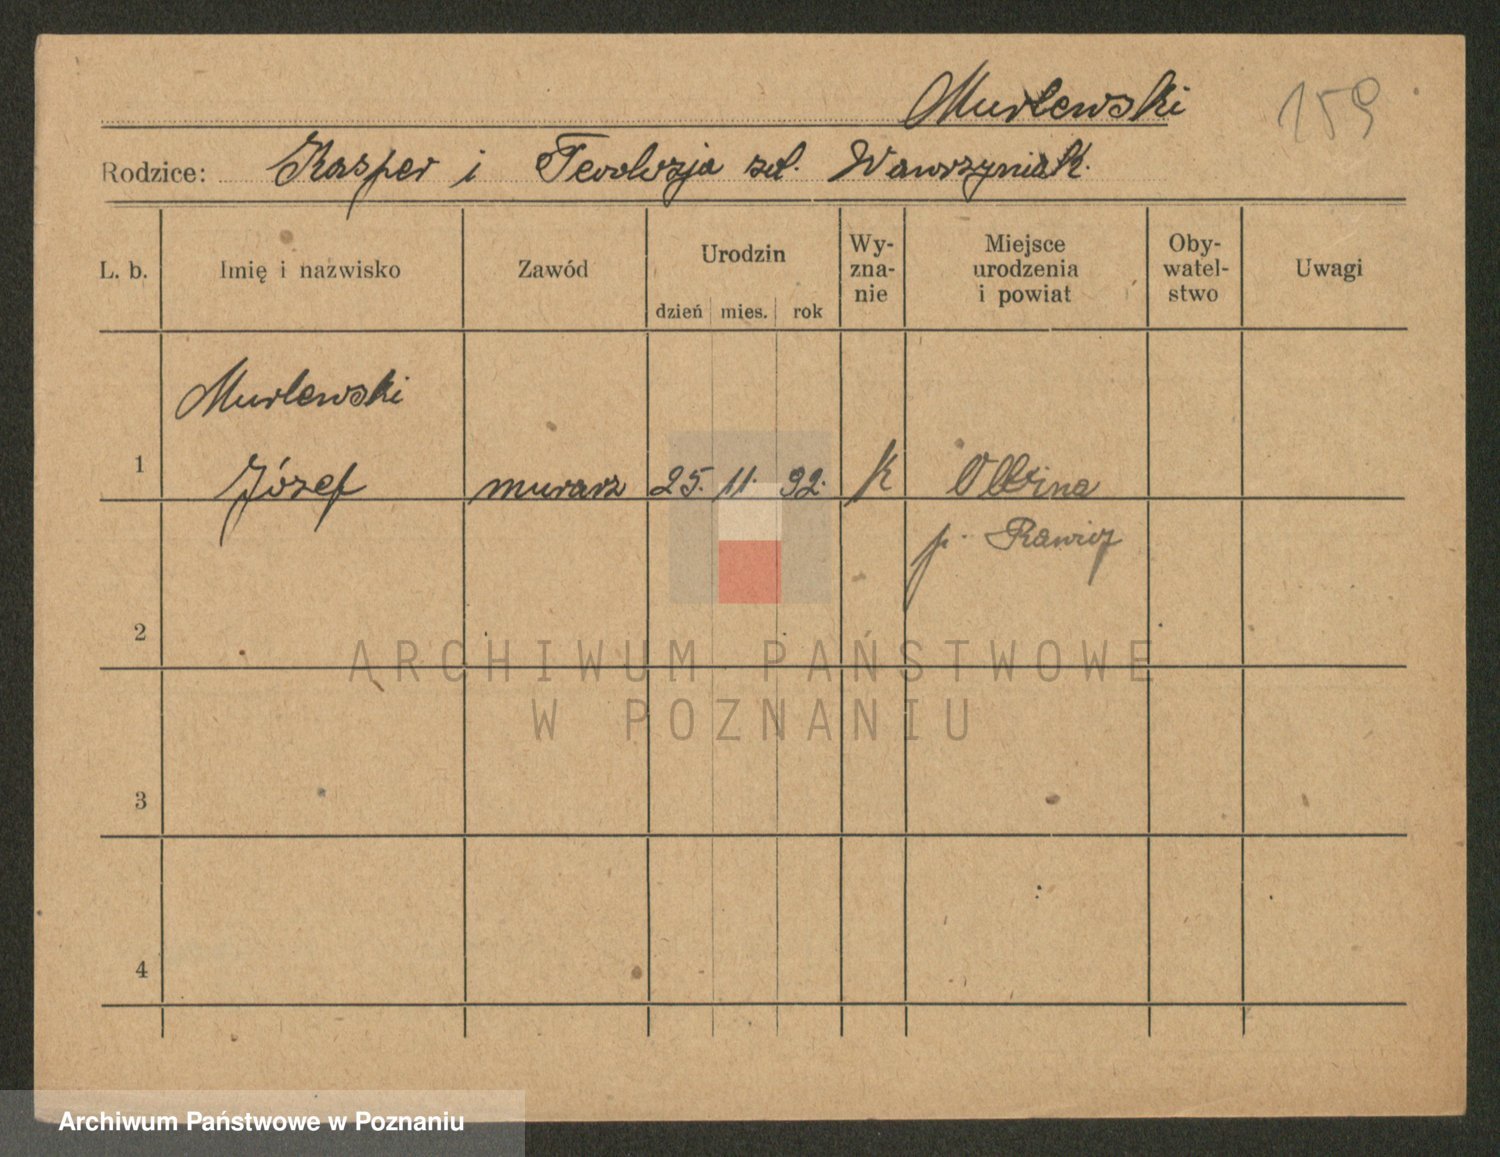 Murlewski 159
Rodzice: Kasper i Teodozja zd. Wawrzyniak.
L. b. Imię i nazwisko Zawód Urodzin Wy-zna-nie Miejsce urodzenia i powiat Oby-watel-stwo Uwagi
dzień mies. rok
Murlewski
1 Józef murarz 25. 11. 92. K
p. Rawicz
2
ARCHIWUM PAŃSTWOWE
W POZNANIU
3
4
Archiwum Państwowe w Poznaniu